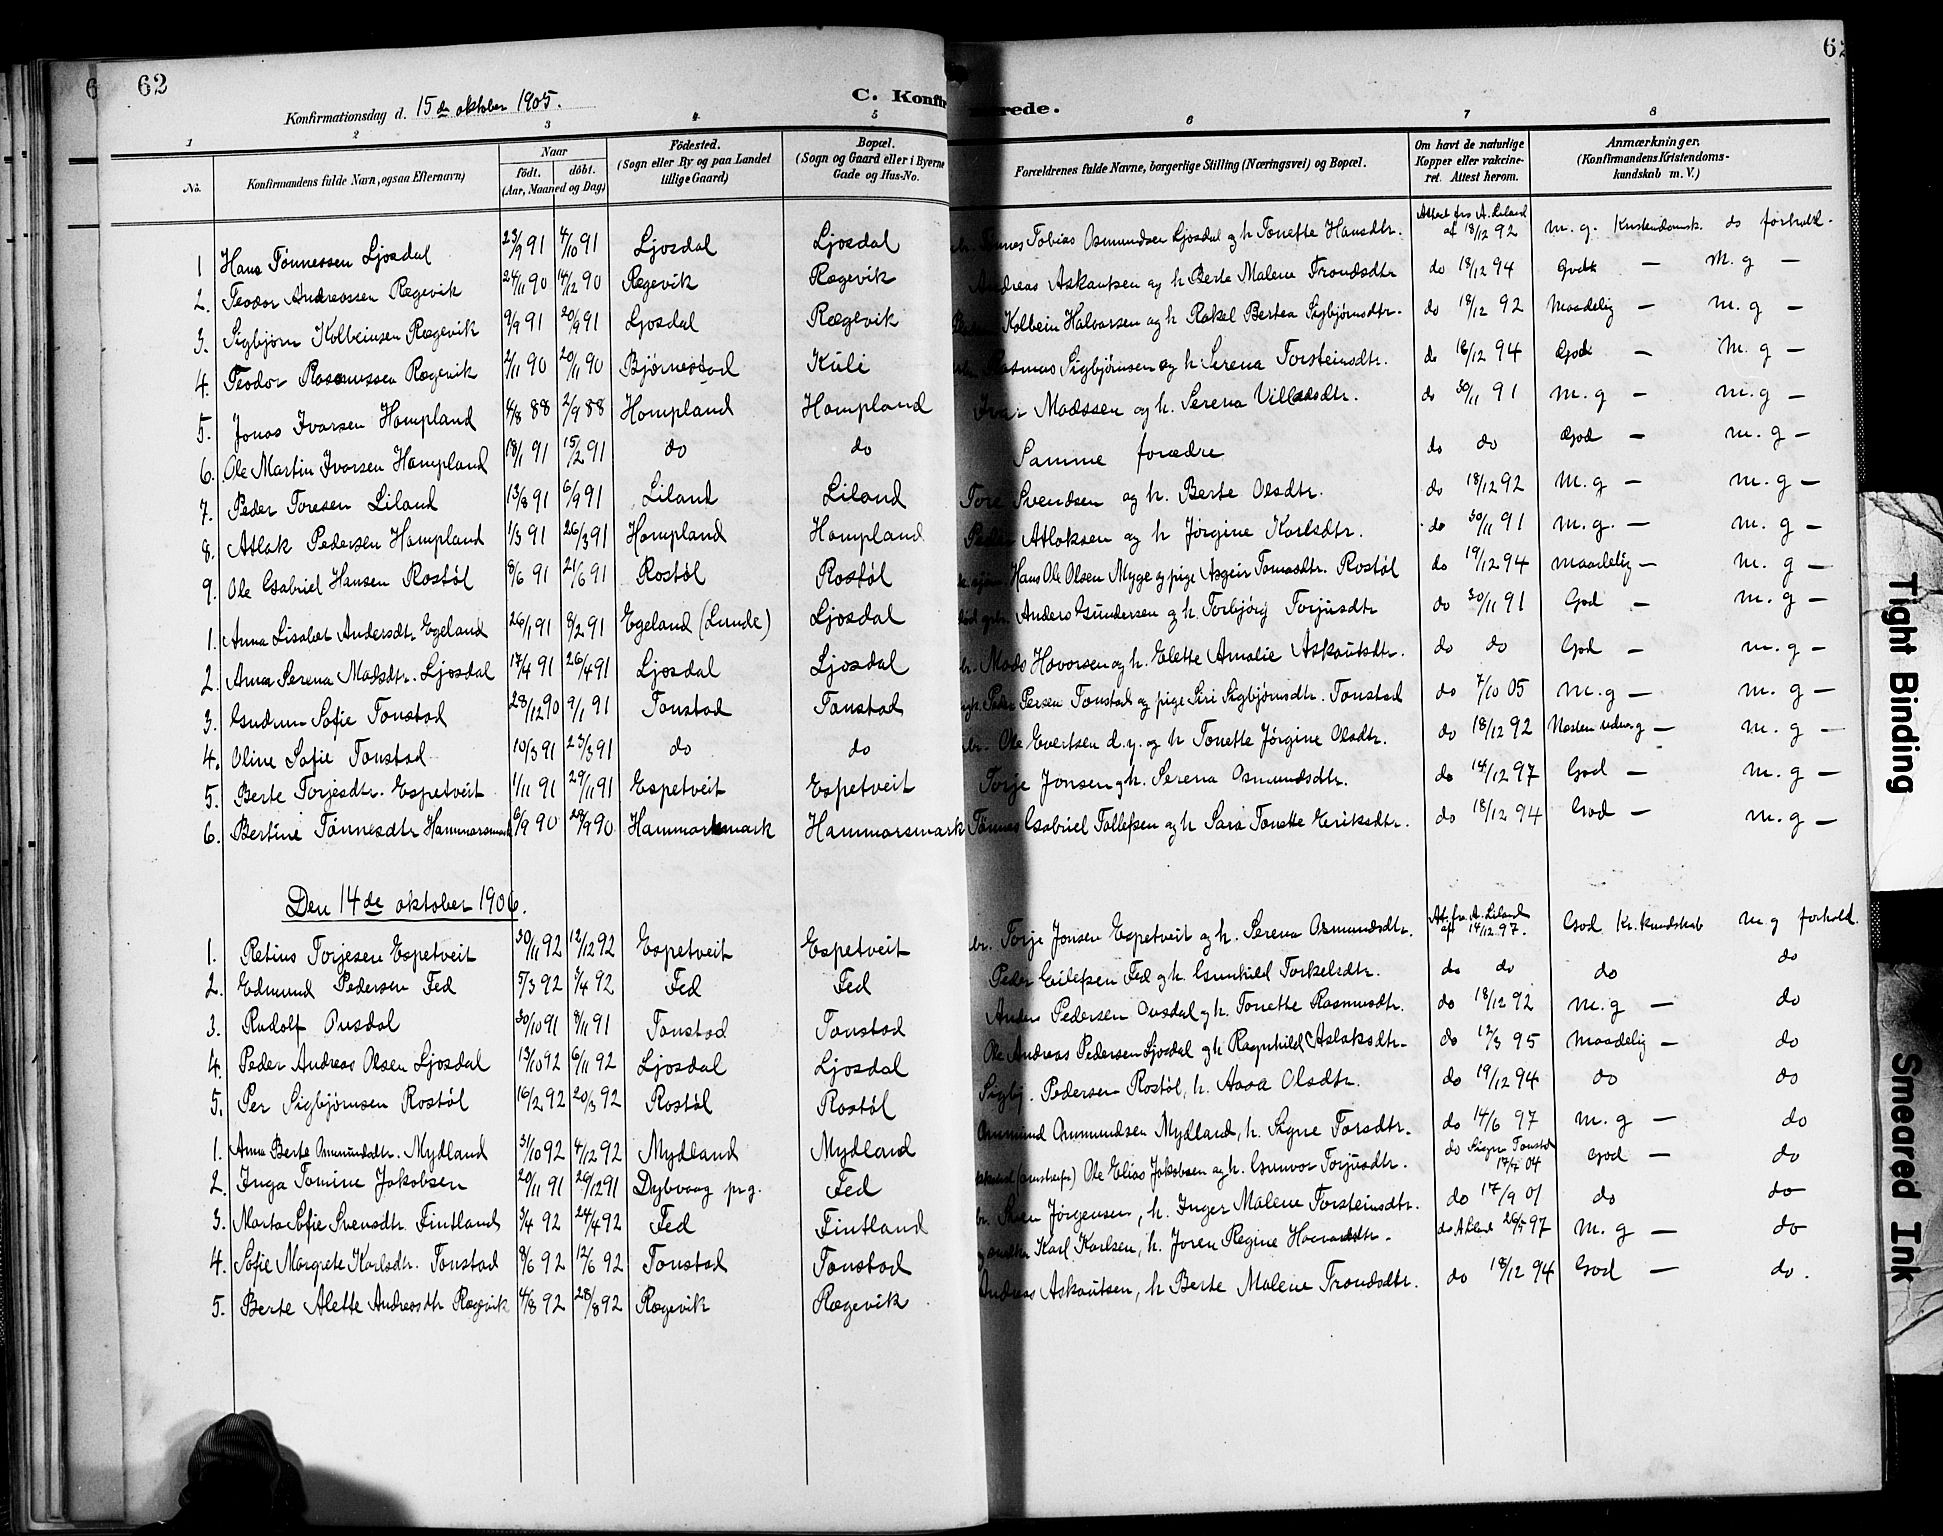 62
62
C. Konfir rede.
Konfirmationsdag d. 15de oktober 1905.
1 2 3 4 5 6 7 8
No. Konfirmandens fulde Navn, ogsaa Efternavn) Naar født. døbt. (Aar, Maaned og Dag) Födested. (Sogn eller By og paa Landet lillige Gaard) Bopæl. (Sogn og Gaard eller i Byerne Gade og Hus-No. Forældrenes fulde Navne, borgerlige Stilling (Næringsvei) og Bopæl. Om havt de naturlige Kopper eller vakcineret. Attest herom. Anmærkninger. (Konfirmandens Kristendomskundskab m. V.)
1 Hans Tønnessen Ljosdal 23/9 91 4/10 91 Ljosdal Ljosdal Tobias Osmundsen Ljosdal og h Tonette Hansdtr. Attest fra A. Liland af 18/12 92 m. g. Kristendomsk. do forhold.
2. Teodor Andreassen Rægevik 24/11 90 14/12 90 Rægevik Rægevik Andreas Askautsen og h Berte Malene Trondsdtr do 18/12 94 Godt — m. g —
3. Sigbjørn Kolbeinsen Rægevik 9/9 91 20/9 91 Ljosdal Rægevik Kolbein Halvorsen og h Rakel Bertea Sigbjørnsdtr. do 18/12 92 Maadelig — m. g —
4. Teodor Rasmussen Rægevik 2/11 90 20/11 90 Bjørnestad Kuli Rasmus Sigbjørnsen og h Serena Torsteinsdtr. do 18/12 94 God — m. g —
5. Jonas Ivarsen Hompland 4/8 88 2/9 88 Hompland Hompland Ivar Madssen og h. Serena Villadsdtr. do 30/11 91 m. g — m. g —
6. Ole Martin Ivarsen Hompland 18/1 91 15/2 91 do do Samme forædre do do God — m. g —
7. Peder Toresen Liland 13/8 91 6/9 91 Liland Liland Tore Svendsen og h. Berte Olsdtr. do 18/12 92 m. g — m. g —
8. Atlak Pedersen Hompland 1/3 91 26/3 91 Hompland Hompland Peder Atlaksen og h Jørgine Karlsdtr. do 30/11 91 m. g. — m. g —
9. Ole Gabriel Hansen Rostøl 8/6 91 21/6 91 Rostøl Rostøl Hans Ole Olsen Myge og pige Asgeir Tomasdtr. Rostøl do 19/12 94 maadelig — m. g —
1. Anna Lisabet Andersdtr Egeland 26/1 91 8/2 91 Egeland (Lunde) Ljosdal Anders Gundersen og h. Torbjørg Torjusdtr do 30/11 91 God — m. g —
2. Anna Serena Madsdtr. Ljosdal 17/4 91 26/4 91 Ljosdal Ljosdal Mads Hovorsen og h. Elette Amalie Askautsdtr. do do God — m. g —
3. Gudrun Sofie Tonstad 28/12 90 9/1 91 Tonstad Tonstad Peder Persen Tonstad og pige Siri Sigbjørnsdtr. Tonstad do 7/10 05 m. g — m. g —
4. Oline Sofie Tonstad 10/3 91 23/3 91 do do Ole Evertsen d. y. og h Tonette Jørgine Olsdtr. do 18/12 92 Næsten udm. g — m. g —
5. Berte Torjesdtr. Espetveit 1/11 91 29/11 91 Espetveit Espetveit Torje Jonsen og h. Serena Osmundsdtr. do 14/12 97 God — m. g —
6. Bertine Tønnesdtr Hammarsmark 6/9 90 28/9 90 Hammarsmark Hammarsmark Tønnes Gabriel Tollefsen og h Sara Tonette Eriksdtr. do 18/12 94 God — m. g —
Den 14de oktober 1906.
1. Retius Torjesen Espetveit 30/11 92 12/12 92 Espetveit Espetveit Torje Jonsen Espetveit og h. Serena Osmundsdtr. At. fra A. Liland af 14/12 97. God Kr. kundskab m. g forhold.
2. Edmund Pedersen Fed 5/3 92 3/4 92 Fed Fed Peder Eilefsen Fed og h. Gunhild Torkelsdtr. do do do do
3. Rudolf Ousdal 30/10 91 8/11 91 Tonstad Tonstad Anders Pedersen Ousdal og h. Tonette Rasmusdtr. do 18/12 92 m. g — do
4. Peder Andreas Olsen Ljosdal 13/10 92 6/11 92 Ljosdal Ljosdal Ole Andreas Pedersen Ljosdal og h Ragnhild Aslaksdtr. do 12/3 95 Maadelig — do
5. Per Sigbjørnsen Rostøl 16/2 92 20/3 92 Rostøl Rostøl Sigbj. Pedersen Rostøl, h. Aasa Olsdtr. do 19/12 94 do do
1. Anna Berte Osmundsdtr. Mydland 31/10 92 4/12 92 Mydland Mydland Osmund Osmundsen Mydland, h. Signe Torsdtr. do 14/6 97 m. g — do
2. Inga Tomine Jakobsen 20/11 91 26/12 91 Dybvaag prg. Fed Ole Elias Jakobsen og h. Gunvor Torjusdtr. do Signe Tonstad 17/4 04 God — do
3. Marta Sofie Svensdtr. Fintland 3/4 92 24/4 92 Fed Fintland Sven Jørgensen, h. Inger Malene Torsteinsdtr. do 17/9 01 do do
4. Sofie Margrete Karlsdtr. Tonstad 8/6 92 12/6 92 Tonstad Tonstad Karl Karlsen, h. Joren Regine do A. Liland 26/5 97 m. g — do
5. Berte Alette Andreasdtr Rægevik 4/8 92 28/8 92 Rægevik Rægevik Andreas Askautsen, h Berte Malene Trondsdtr. do 18/12 94 God — do.
Tight Binding
Smeared Ink